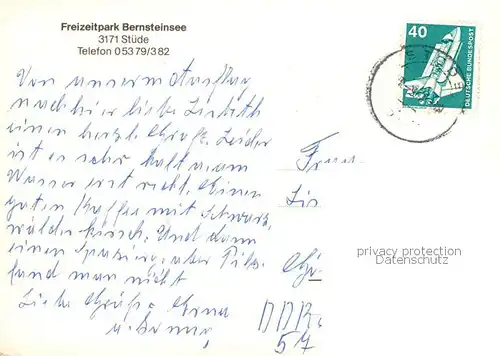 Freizeitpark Bernsteinsee
3171 Stüde
Telefon 05379/382
40
DEUTSCHE BUNDESPOST
Von unserm Ausflug
nach hier liebe Lisbeth
einen herzl. Gruß. Leider
ist es sehr kalt u. am
Wasser erst recht. Einen
guten Kaffee mit Schwarz
wälder kirsch. Und dann
einen Spazierg. aber Pilze
fand man nicht
Liebe Grüße Erna
u.
Frau
Lis
DDR
57
privacy protection
Datenschutz